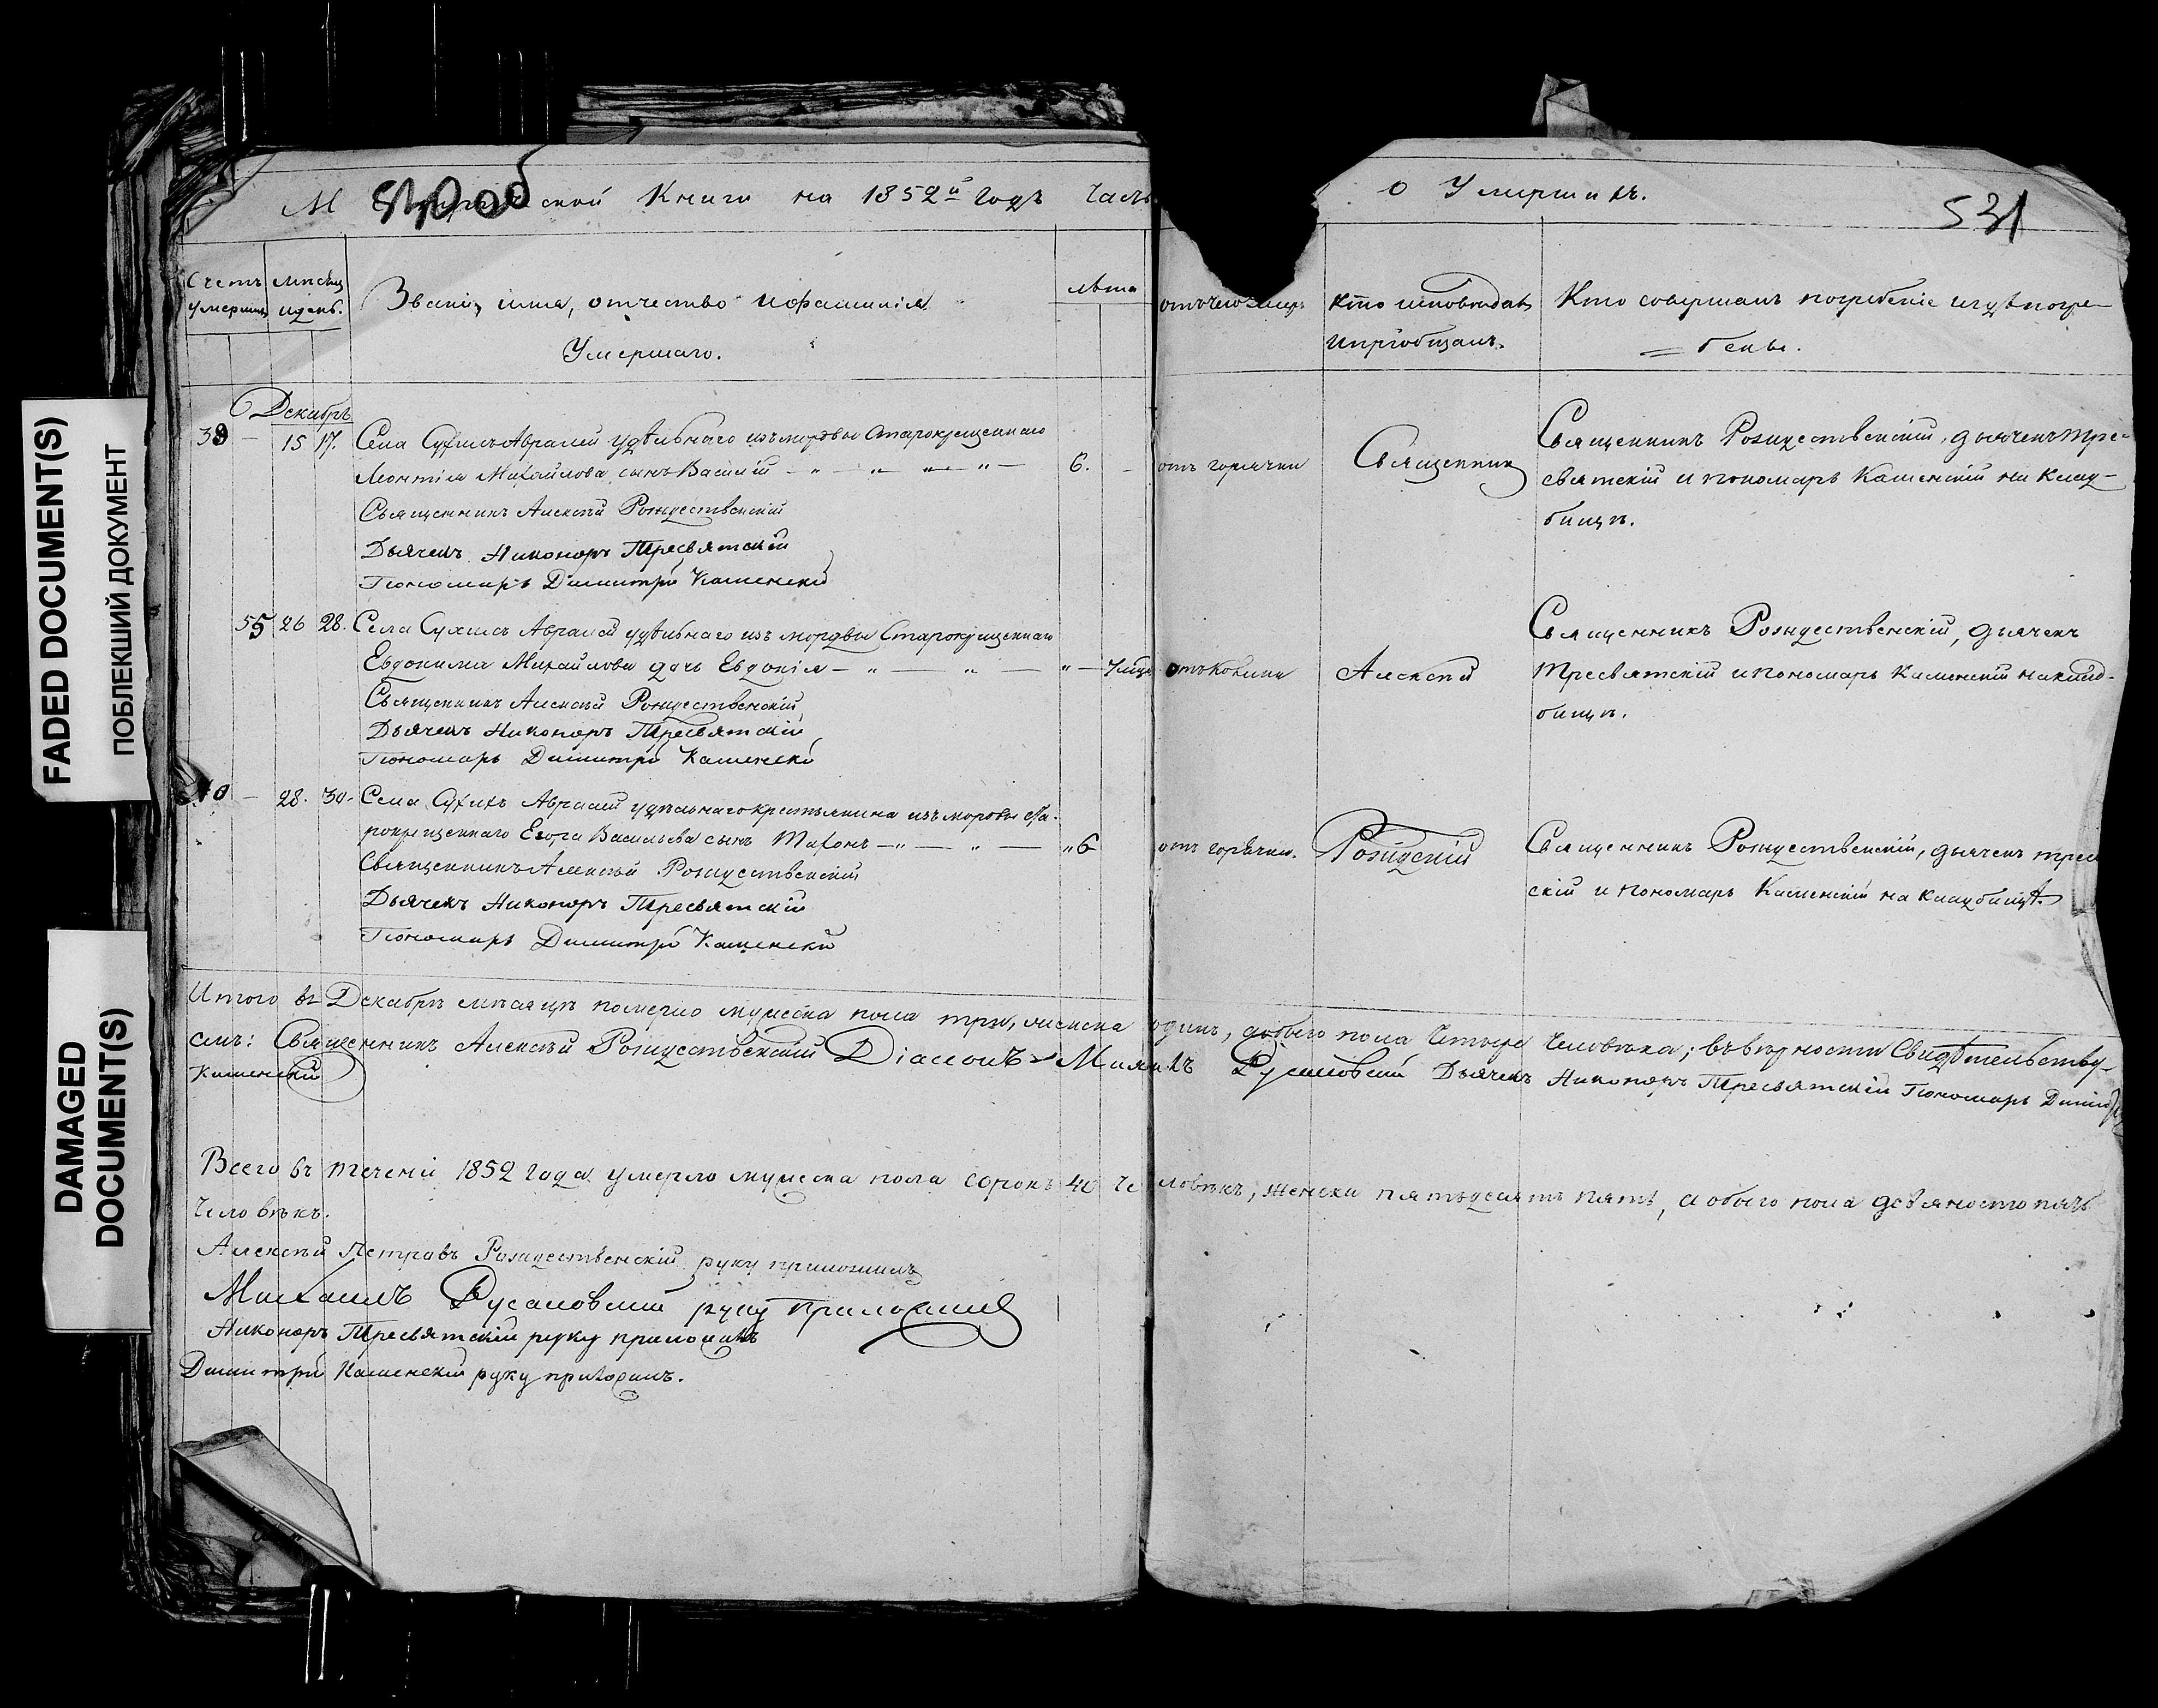 FADED DOCUMENT(S)
ПОБЛЕКШИЙ ДОКУМЕНТ
DAMAGED
DOCUMENT(S)
Книги на 1852й годъ Часть
о Умершихъ.
531
Счетъ умершихъ
мѣсяц и день.
Званіе, имя, отчество и фамилія
Умершаго.
лѣта
отъ чего умеръ
Кто исповѣдалъ
и пріобщалъ.
Кто совершалъ погребеніе и гдѣ погре-
бены.
Декабрь
39 — 15 17. Села Авралей удѣльнаго изъ мордвы старокрещеннаго
Леонтія Михайлова сынъ Василій 6. — отъ горячки
Священникъ Алексѣй Рождественскій
Дьячекъ Никоноръ Тресвятскій
Пономарь Димитрій Каменскій
Священник
Священникъ Рождественскій, дьячекъ Тре-
святскій и пономарь Каменскій на клад-
бищѣ.
55 26 28. Села Авралей удѣльнаго изъ мордвы Старокрещеннаго
Евдокима Михайлова дочь Евдокія
Священникъ Алексѣй Рождественскій
Дьячекъ Никоноръ Тресвятскій
Пономарь Димитрій Каменскій
Алексѣй
Священникъ Рождественскій, дьячекъ
Тресвятскій и пономарь Каменскій на клад-
бищѣ.
40 — 28. 30. Села Авралей удѣльнаго крестьянина изъ мордвы ста-
рокрещеннаго Егора Васильева сынъ Тихонъ 6 отъ горячки.
Священникъ Алексѣй Рождественскій
Дьячекъ Никоноръ Тресвятскій
Пономарь Димитрій Каменскій
Священникъ Рождественскій, дьячекъ тресвят
скій и пономарь Каменскій на кладбищѣ.
Итого въ Декабрѣ мѣсяцѣ померло мужеска пола три, женска одинъ, обоего пола четыре человѣка; въ вѣрности свидѣтельству-
емъ: Священникъ Алексѣй Рождественскій Діаконъ Михаилъ Русановскій Дьячекъ Никоноръ Тресвятскій Пономарь Димитрій
Каменскій
Всего въ теченіи 1852 года умерло мужеска пола сорокъ 40 человѣкъ, женска пятьдесятъ пять, а обоего пола девяносто пять
человѣкъ.
Алексѣй Петровъ Рождественскій руку приложилъ
Михаилъ Русановскій руку приложилъ
Никоноръ Тресвятскій руку приложилъ
Димитрій Каменскій руку приложилъ.